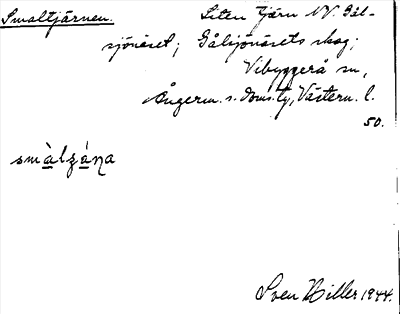 Smaltjärnen. Liten tjärn NV. Gål-
sjönäset; Gålsjönäsets skog;
Vibyggerå sn,
Ångerm. s. doms.ty, Västern. l.
50.
smàlzáṇa
Sven Hiller 1944.